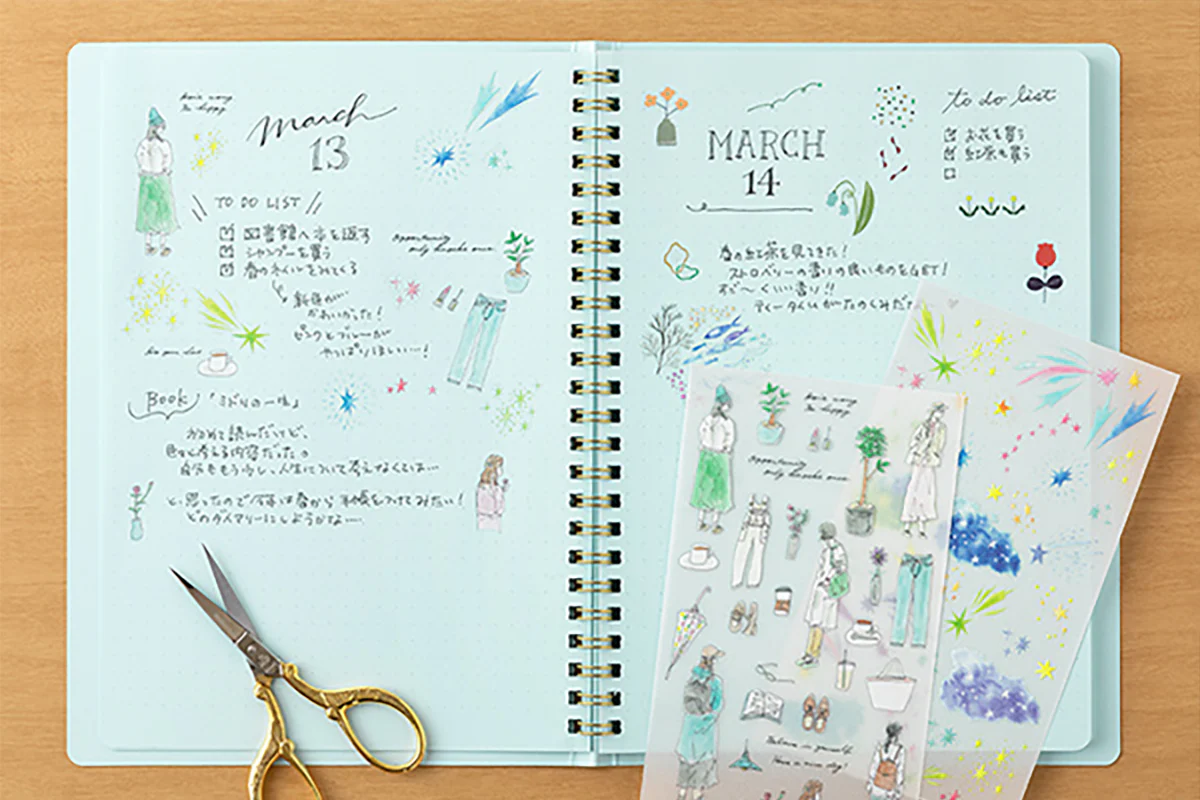 march
13
TO DO LIST
図書館へ本を返す
シャンプーを買う
春のネイルをみてくる
新色が
かわいかった!
ピンクとブルーが
やっぱりほしい…!
Opportunity
only knocks once.
Book 「ミドリの一生」
かさねて読んだけど、
色々と考える内容だった。
自分ももう少し、人生について考えなくては…
と、思ったので今年は春から手帳をつけてみたい!
どのダイアリーにしようかな…
MARCH
14
to do list
お花を買う
紅茶も買う
春の紅茶を見てきた!
ストロベリーの香りの良いものをGET!
すご〜くいい香り!!
ティータイムがたのしみだ
Opportunity
only knocks once.
Believe in yourself.
Have a nice day!